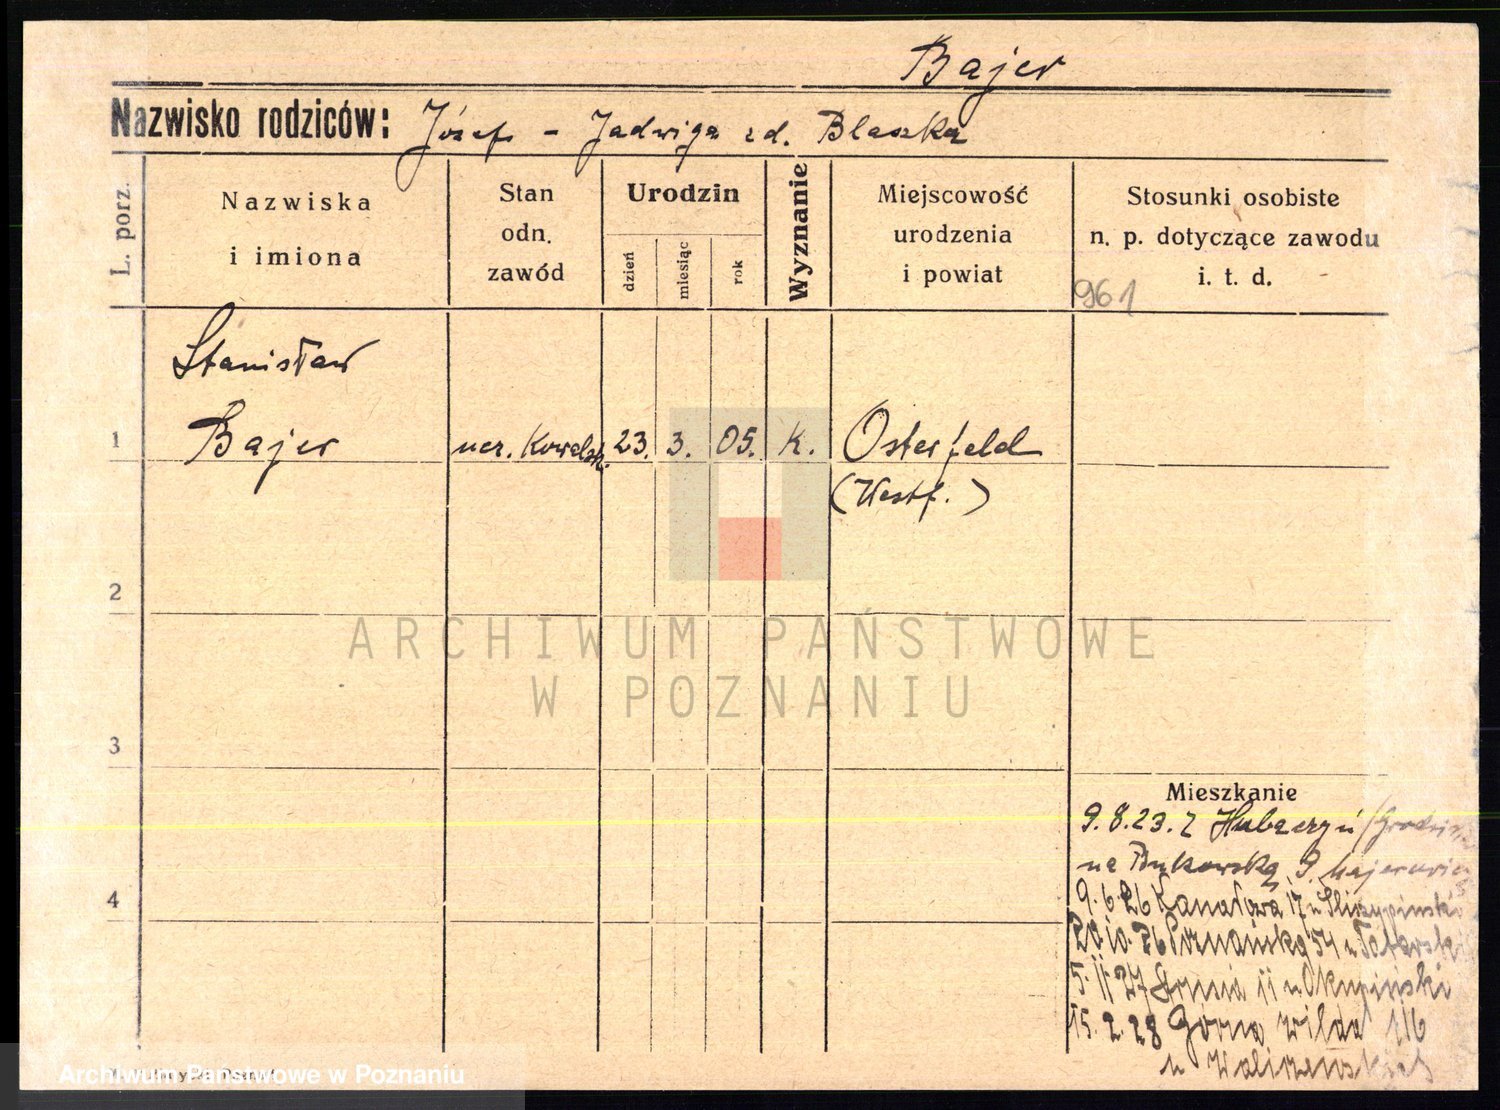 Bajer
Nazwisko rodziców: Józef - Jadwiga zd. Blaszka
L. porz.
Nazwiska
i imiona
Stan
odn.
zawód
Urodzin
dzień
miesiąc
rok
Wyznanie
Miejscowość
urodzenia
i powiat
Stosunki osobiste
n. p. dotyczące zawodu
i. t. d.
961
Stanisław
1 Bajer ucz. Kowalsk. 23. 3. 05. K. Osterfeld
(Westf.)
2
ARCHIWUM PAŃSTWOWE
W POZNANIU
3
Mieszkanie
9.8.23. z
na Bukowska 9
4
9.6.26 Kanałowa 17 u
20.10.26 Poznańska 54 u
5.11.27 11 u Okupiński
15.2.28 Górna Wilda 116
u
Archiwum Państwowe w Poznaniu